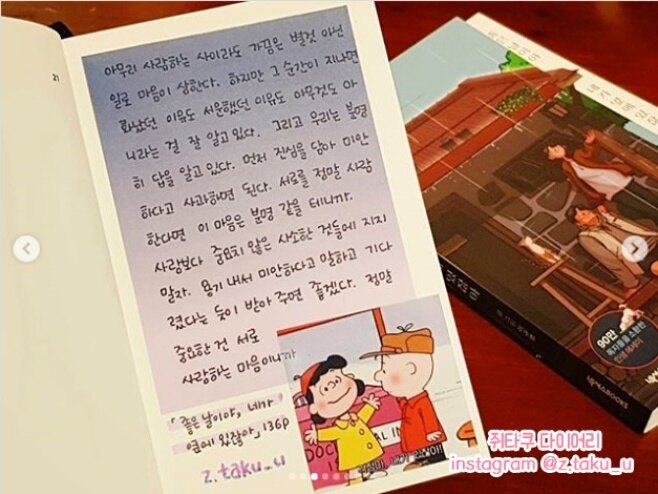 21
아무리 사랑하는 사이라도 가끔은 별것 아닌
일로 마음이 상한다. 하지만 그 순간이 지나면
화났던 이유도 서운했던 이유도 아무것도 아
니라는 걸 잘 알고 있다. 그리고 우리는 분명
히 답을 알고 있다. 먼저 진심을 담아 미안
하다고 사과하면 된다. 서로를 정말 사랑
한다면 이 마음은 분명 같을 테니까.
사랑보다 중요치 않은 사소한 것들에 지지
말자. 용기 내서 미안하다고 말하고 기다
렸다는 듯이 받아 주면 좋겠다. 정말
중요한 건 서로
사랑하는 마음이니까
「좋은 날이야, 네가
옆에 있잖아」 136p
z.taku_u
90만
독자들을 소환한
넥서스BOOKS
쥐타쿠 다이어리
instagram @z.taku_u